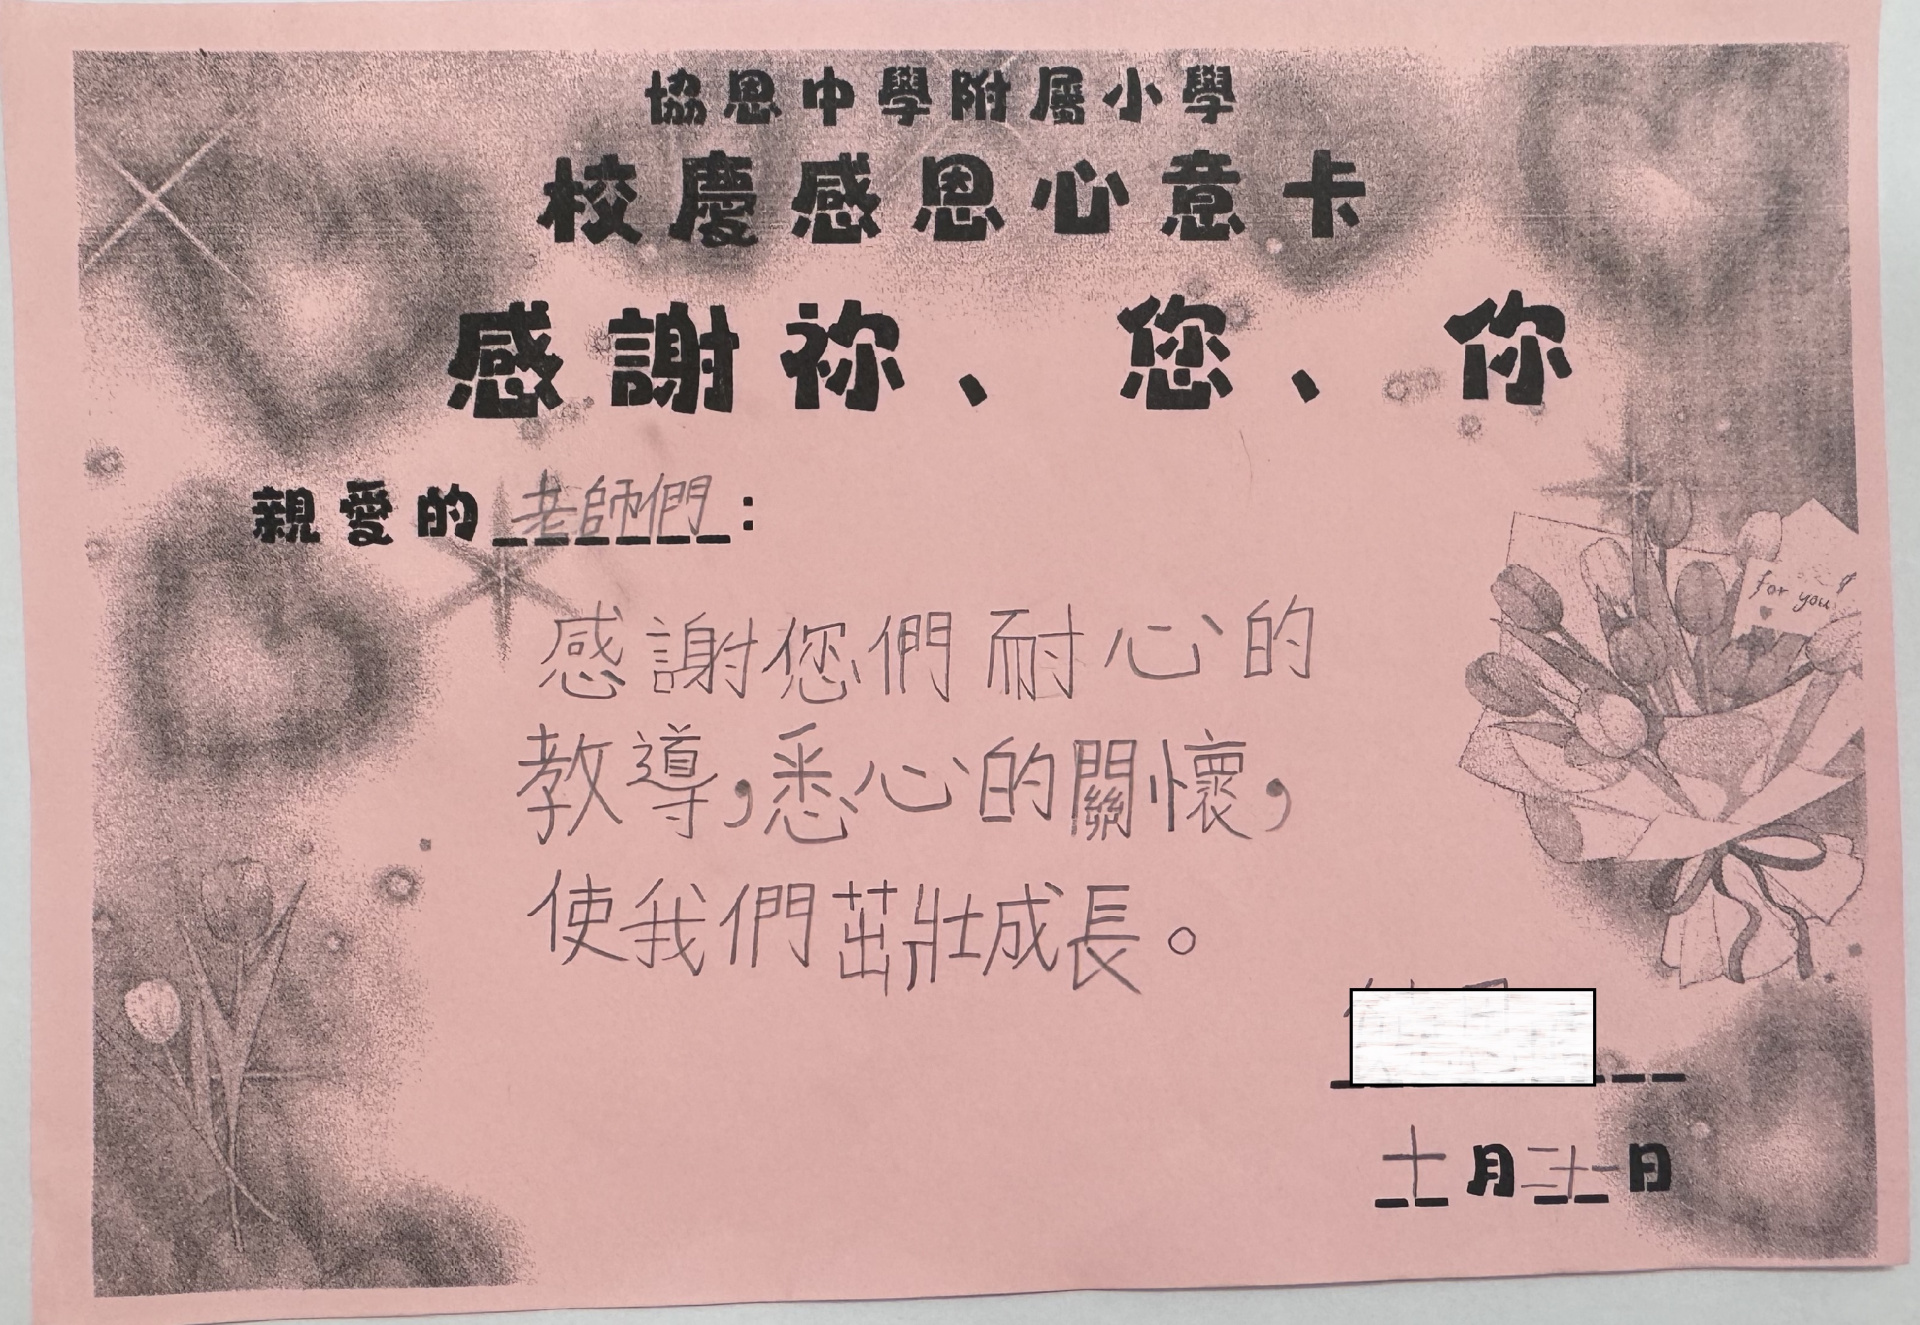 協恩中學附屬小學
校慶感恩心意卡
感謝祢、您、你
親愛的老師們：
for you
感謝您們耐心的
教導，悉心的關懷，
使我們茁壯成長。
十月三十一日